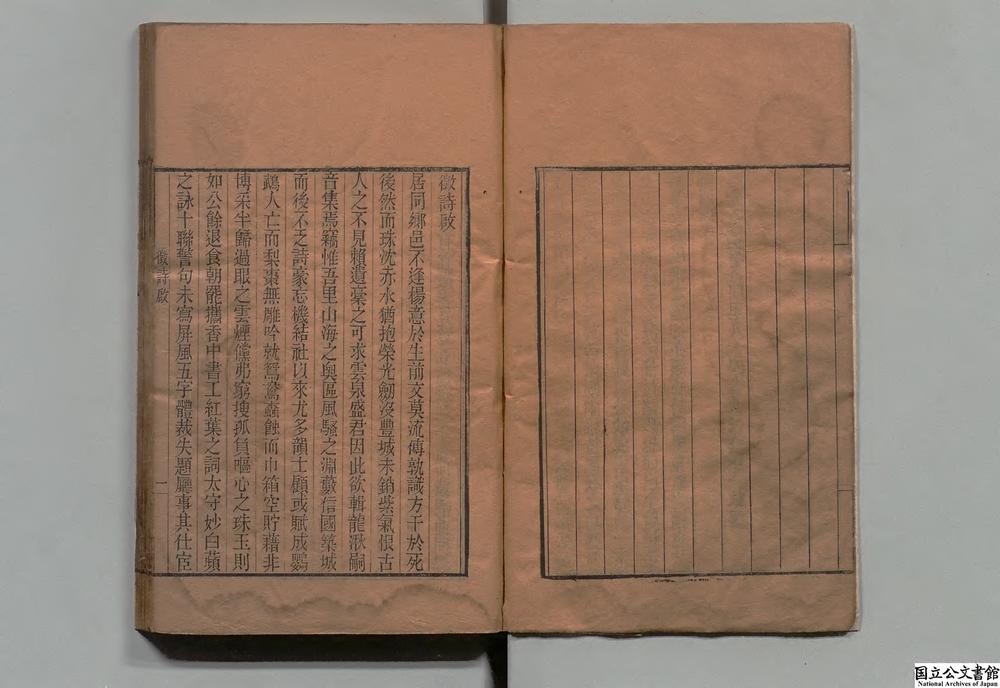 徵詩啟
居同鄉邑不逢楊意於生前文莫流傳孰識方干於死
後然而珠沈赤水猶抱榮光劒沒豐城未銷紫氣恨古
人之不見賴遺稾之可求雲泉盛君因此欲輯龍湫嗣
音集焉竊惟吾里山海之奧區風騷之淵藪信國築城
而後不乏詩豪忘機結社以來尤多韻士顧或賦成鸚
鵡人亡而梨棗無雕吟就鴛鴦蠹蝕而巾箱空貯藉非
博采半歸過眼之雲煙儻弗窮搜孤負嘔心之珠玉則
如公餘退食朝罷攜香中書工紅葉之詞太守妙白蘋
之詠十聯警句未寫屏風五字體裁失題廳事其仕宦
徵詩啟
一
国立公文書館
National Archives of Japan